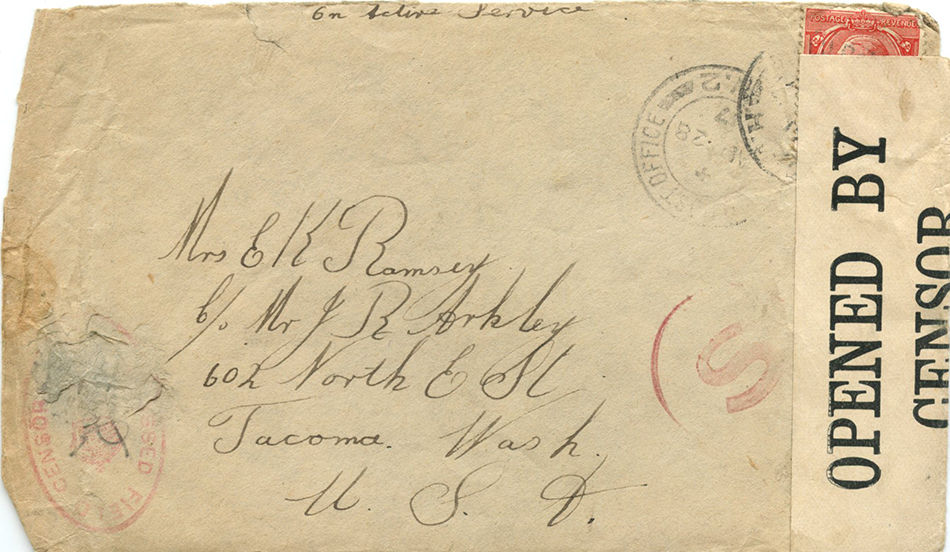 On Active Service
POSTAGE REVENUE
POST OFFICE
28
OPENED BY
CENSOR
Mrs E K Ramsey
c/o Mr J R Arkley
602 North E St
Tacoma. Wash.
U. S. A.
S
PASSED FIELD CENSOR